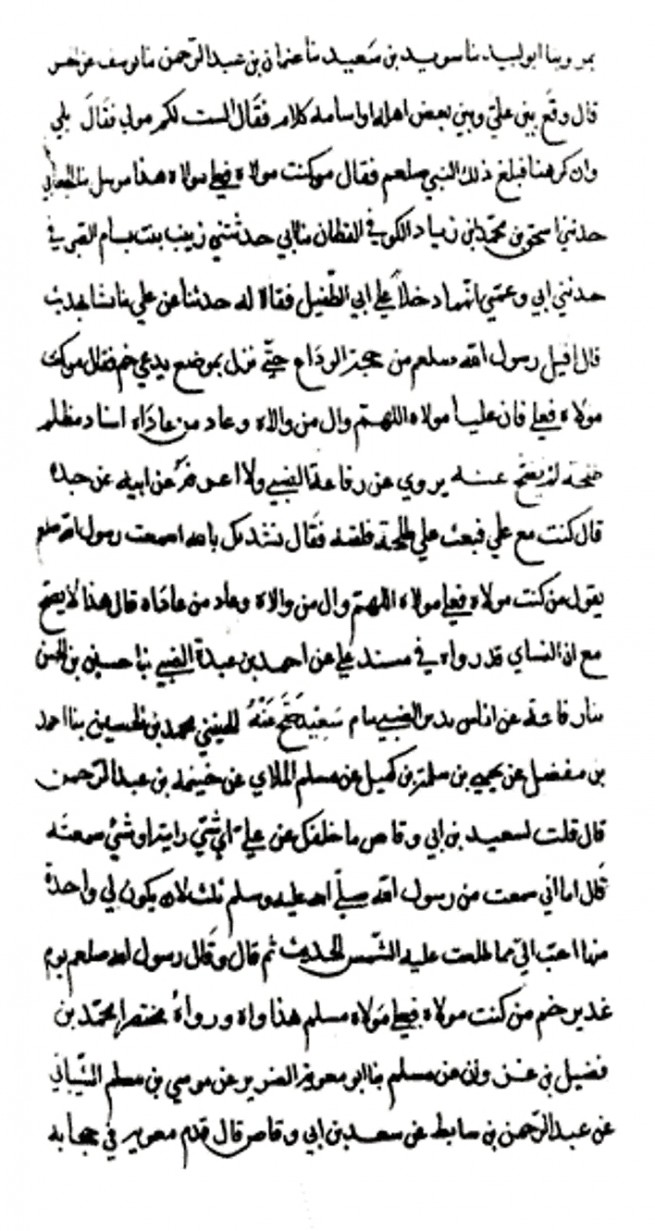 بن سعيد نا عثمان بن عبد الرحمن نا يوسف عن
قال وقع بين علي وبين بعض اهله او اسامة كلام فقال الست لكم مولى فقال بلى
وان كرهنا فبلغ ذلك النبي صلعم فقال من كنت مولاه فعلي مولاه هذا مرسل
حدثني اسحق بن محمد بن زياد الكوفي القطان نا ابي حدثتني زينب بنت بسام الصيرفي
حدثني ابي وعمي انهما دخلا علي ابي الطفيل فقالا له حدثنا عن علي
قال اقبل رسول الله صلعم من حجة الوداع حتى نزل بموضع يدعي خم فقال من كنت
مولاه فعلي فان عليا مولاه اللهم وال من والاه وعاد من عاداه اسناد مظلم
عنه يروي عن رفاعة الضبي عن ابيه عن جده
قال كنت مع علي فبعث علي طلحة فلقيه فقال نشدتك بالله اسمعت رسول الله صلعم
يقول من كنت مولاه فعلي مولاه اللهم وال من والاه وعاد من عاداه قال هذا لا يصح
مع ان النساي قد رواه في مسند علي عن احمد بن عبدة الضبي نا حسين بن الحسن
نا رفاعة عن اياس بن الضبي محمد بن الحسين نا احمد
بن مفضل عن يحيى بن سلمة بن كهيل عن مسلم الملاي عن خيثمة بن عبد الرحمن
قال قلت لسعيد بن ابي وقاص ما خلفك عن علي اي شي رايته او شي سمعته
قال اما اني سمعت من رسول الله صلي الله عليه وسلم ثلث لان يكون لي واحدة
منها احب الي مما طلعت عليه الشمس الحديث ثم قال وقال رسول الله صلعم يوم
غدير خم من كنت مولاه فعلي مولاه مسلم هذا واه ورواه مختصرا محمد بن
فضيل بن غزوان عن مسلم نا ابو معوية الضرير عن موسي بن مسلم الشيباني
عن عبد الرحمن بن سابط عن سعد بن ابي وقاص قال قدم معوية في